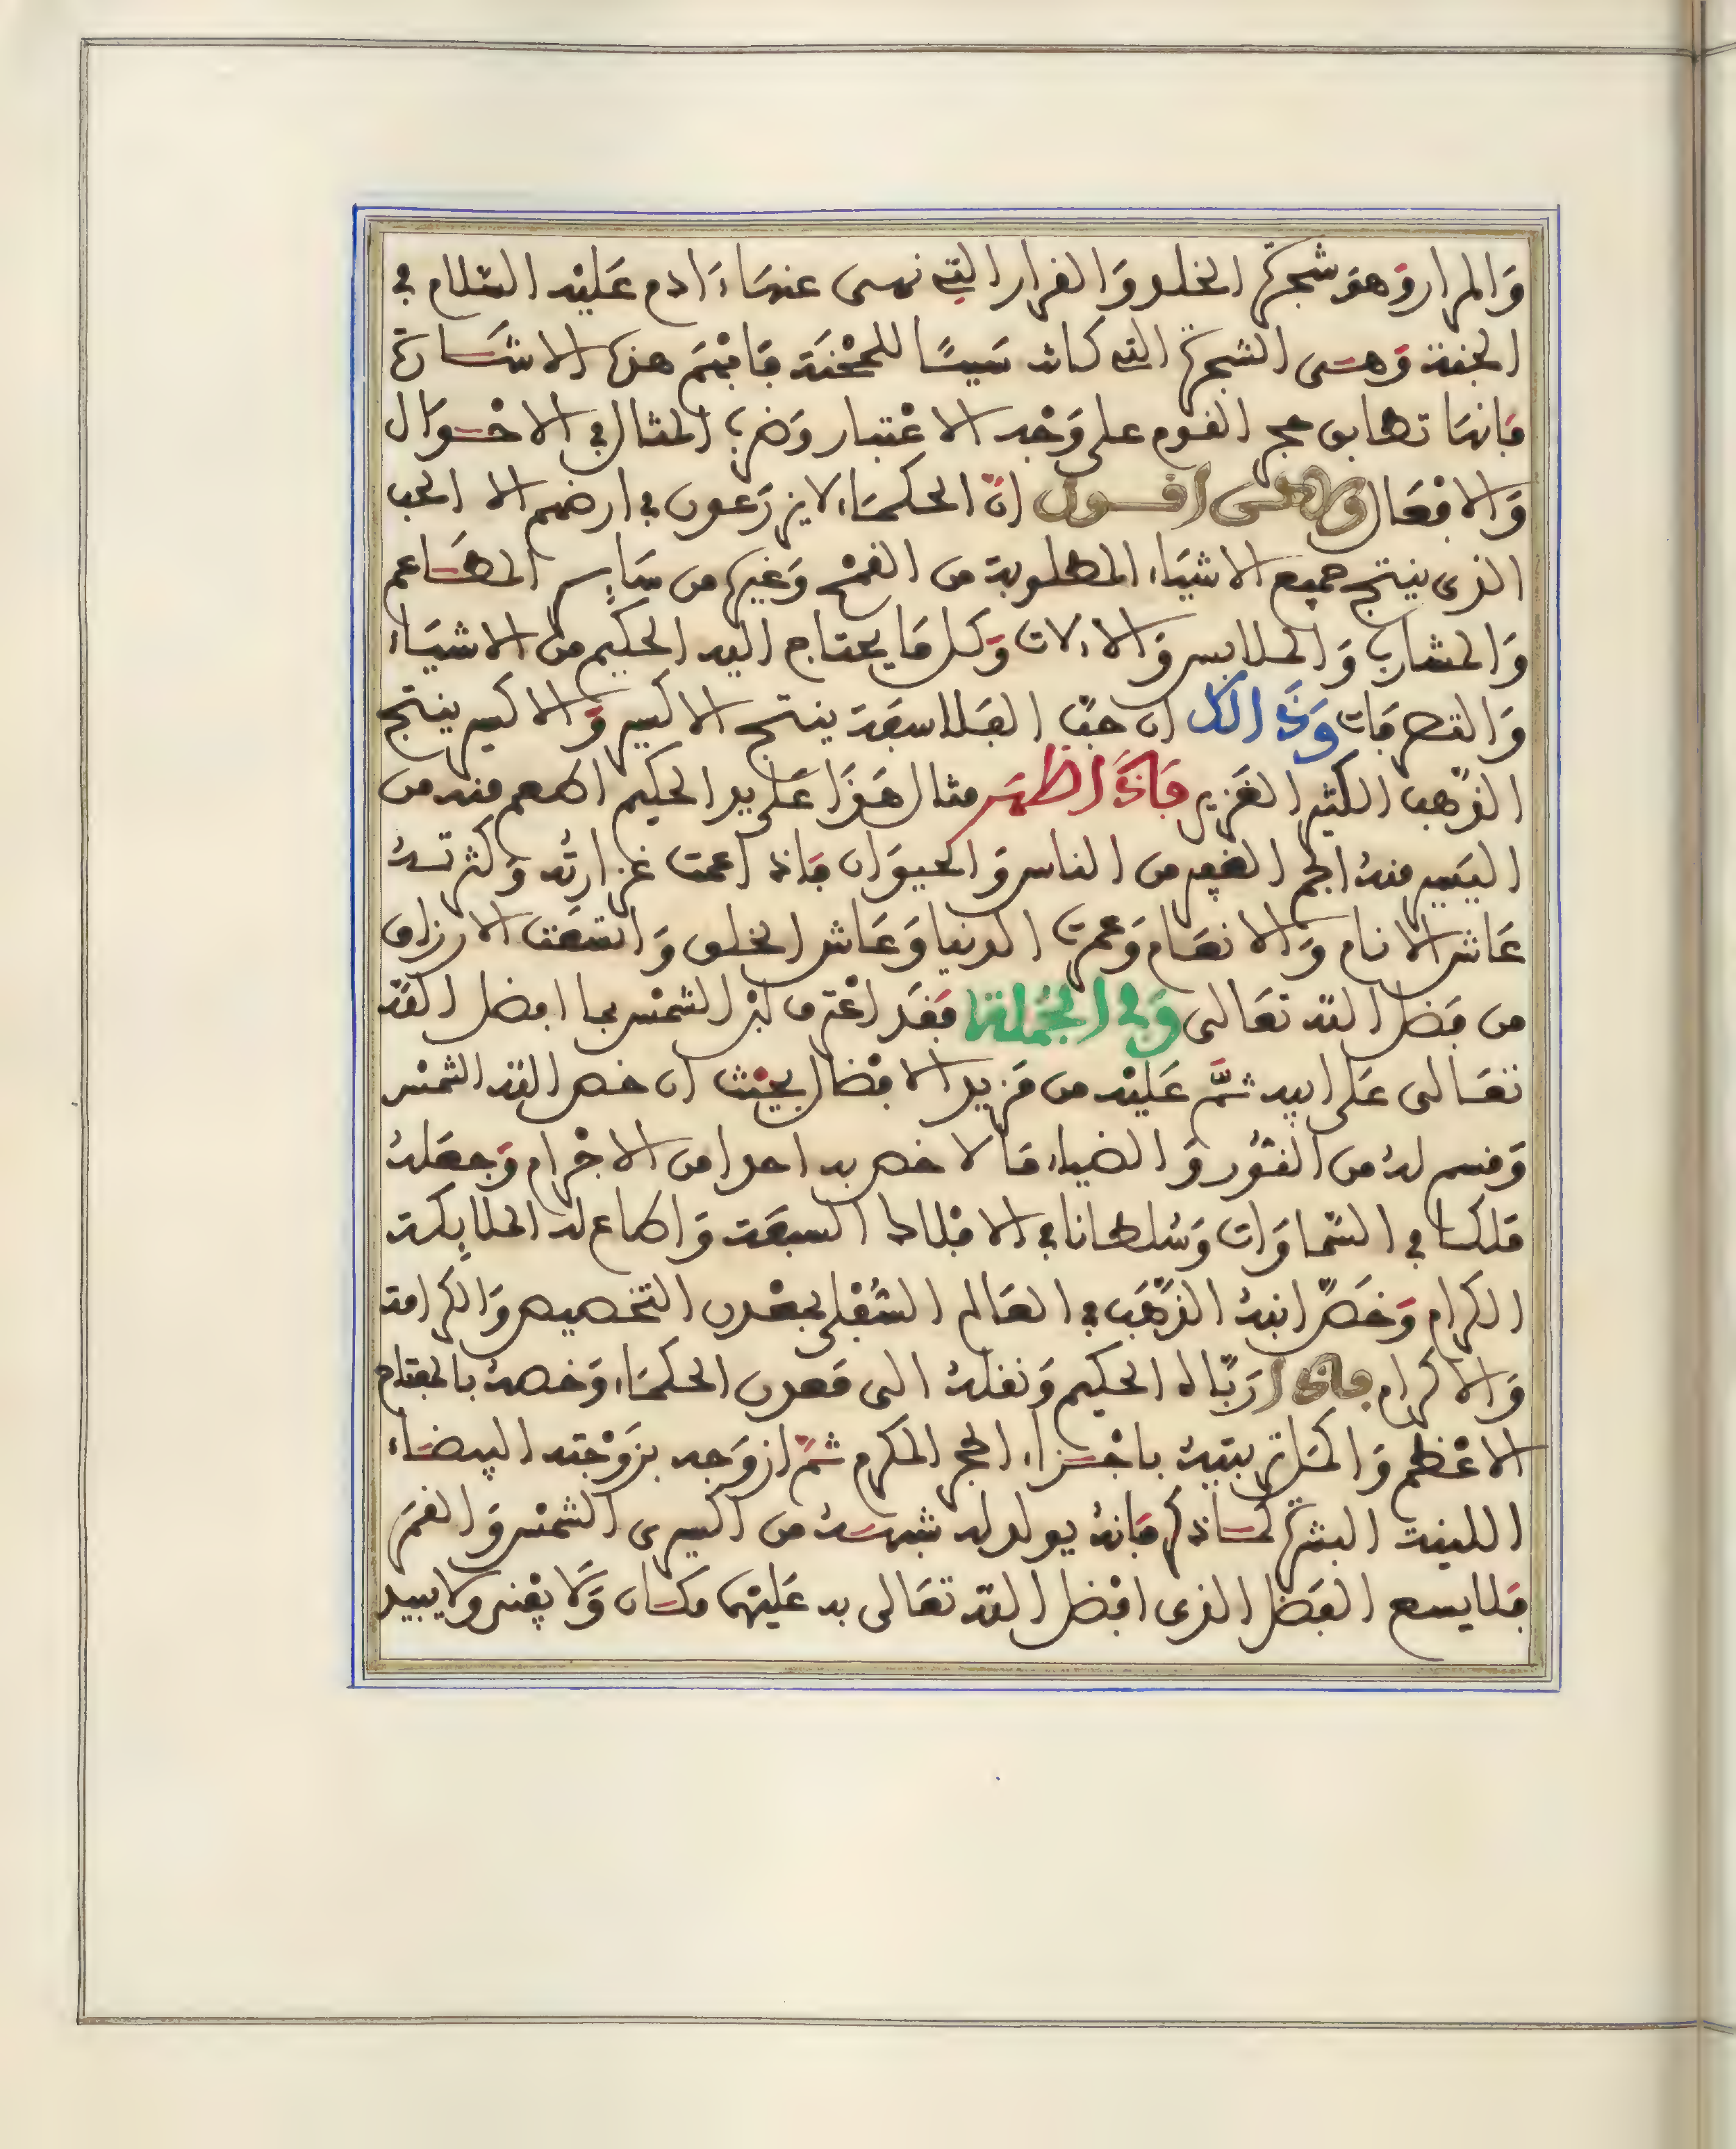 وَالمرار وَهوَ شجرة الخلد وَالفرار التي نهى عنهَا ءَادم عَليْه السّلام في
الجنة وَهـى الشجرة التي كانت سَببًا للمحْنَة فَافهَم هذه الاشَـارة
فَانهَا تطابق حجر القوم على وَجْه الاعْتبار وَضرب المثال في الاحْـوَال
وَالافعَال وَلاكنى اقـول انّ الحكمَاء لا يزرَعون في ارضهم الا الحب
الذى ينتج جميع الاشيَاء المطلوبة من القمْح وَغيره من سَاير المطَـاعم
وَالمشارب وَالملابس وَالالات وَكل مَا يحتاج اليه الحكيم من الاشيَاء
وَالتصرفَات وَذَالك ان حبّ الفَلاسفَة ينتج الاكسير وَالاكسير ينتج
الذّهب الكثير الغَزير فَاذَا ظهَر مثال هَذَا عَلى يد الحكيم اطعم منه من
اليَسير منهُ الجم الغفير من الناس وَالحيوَان فَاذا عمت غزارتُه وَكثرتـهُ
عَاش الانام وَالانعَام وَعمرَت الدنيا وَعَاش الخلق وَاتسَعَت الارزاق
من فَضل اللّه تعَالى وَفى الجُملة فَقَد اعْترف ابْن الشمْس بما افضل اللّه
تعَـالى عَلى ابيه ثمَّ عَليْه من مَزيد الافْضال بحيْث ان خص اللّه الشمْس
وَقسم لهُ من النّوُر وَالضياء مَا لا خص به احدا من الاجْرام وَجعَلهُ
مَلكـا في السّماوَات وَسُلطانا في الافْلاك السبعَة وَاطاع له الملايكة
الكرام وَخَصّ ابنهُ الذّهَب في العَالم السُّفْلى بمعْدن التخصيص وَالكرامة
وَالاكرام فَاذَا رَبّاه الحكيم وَنقلهُ الى مَعدن الحكمَاء وَخصهُ بالمفتاح
الاعْظم وَاكمَل تربيتهُ باجْـزاء الحجر المكرم ثمّ ازوَجه بزَوْجته البيضـاء
اللينة البشرة كمَـا ذكر فَانهُ يولد له شبهـهُ من اكسيرى الشمْس وَالقمَر
فَلا يسع الفَضل الذى افْضل اللّه تعَالى به عَليْهمَا مكـان وَلَا يفْنى وَلا يبيد